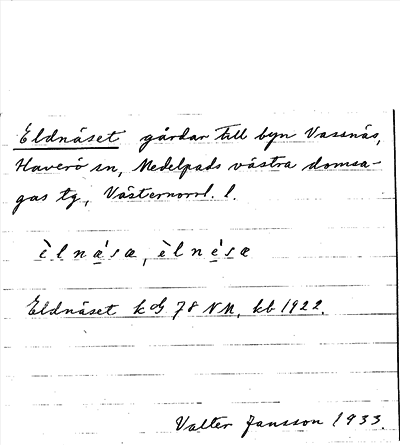 Eldnäset gårdar till byn Vassnäs,
Haverö sn, Medelpads västra domsa-
gas tg, Västernorrl. l.
è l n ä́ s æ, è l n é s æ
Eldnäset k 78 NM, kb 1922.
Valter Jansson 1933.